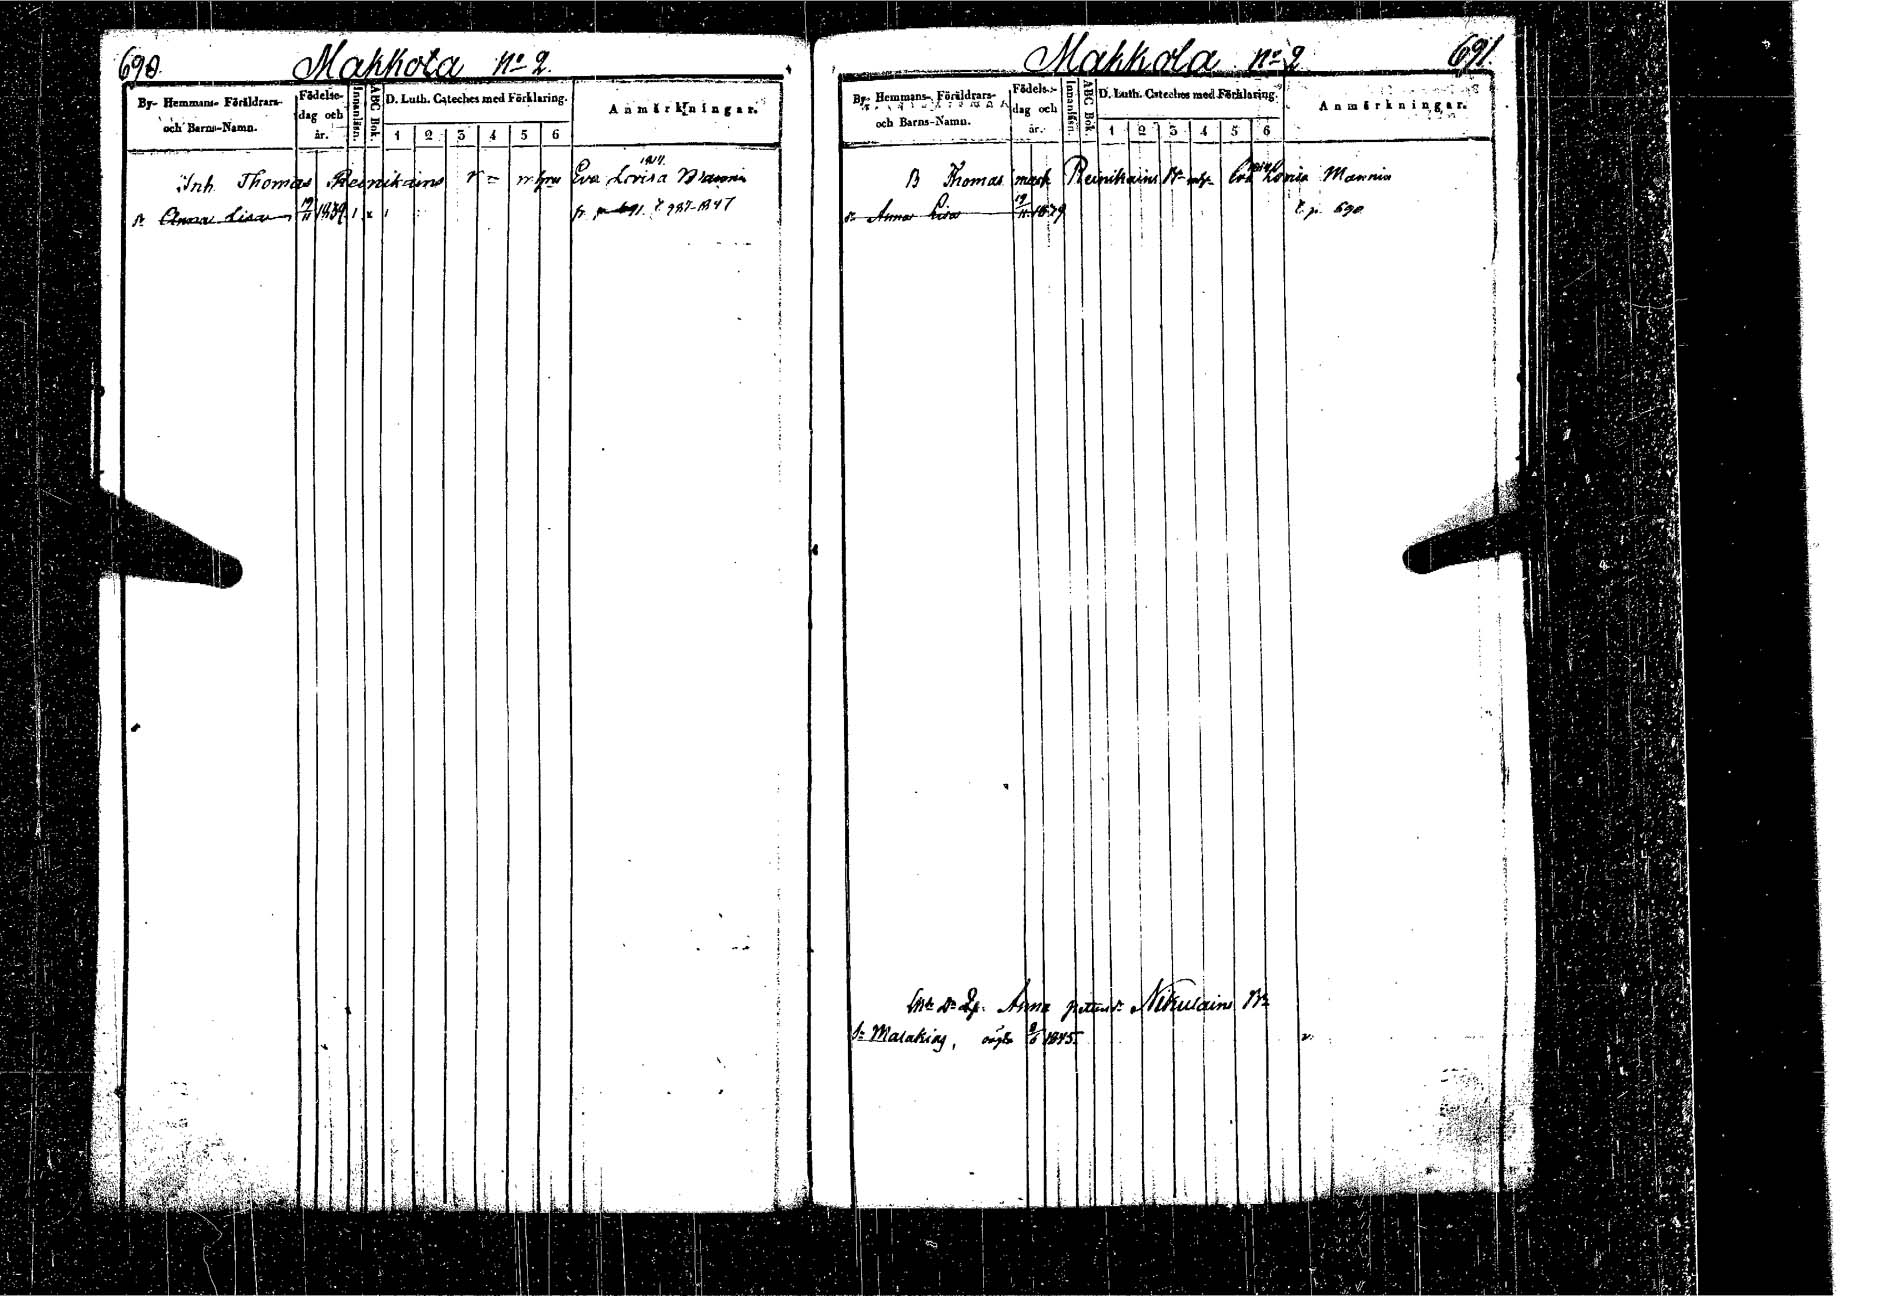 690. Makkola No 2.
By- Hemmans- Föräldrars- och Barns-Namn. Födelse- dag och år. Innanläsn. ABC Bok. D. Luth. Cateches med Förklaring. Anmärkningar.
1 2 3 4 5 6
Inh. Thomas Reinikains Eva Lovisa Mannin
Anna Lisa 19/11 1839 fr p 691. t. 987-1847
Makkola No 2 691.
By- Hemmans- Föräldrars- och Barns-Namn. Födelse- dag och år. Innanläsn. ABC Bok. D. Luth. Cateches med Förklaring. Anmärkningar.
1 2 3 4 5 6
B Thomas Reinikains Eva Lovisa Mannin
Anna Lisa 19/11 1839 t. p. 690
Anna Nikulains
Malakias, 1845